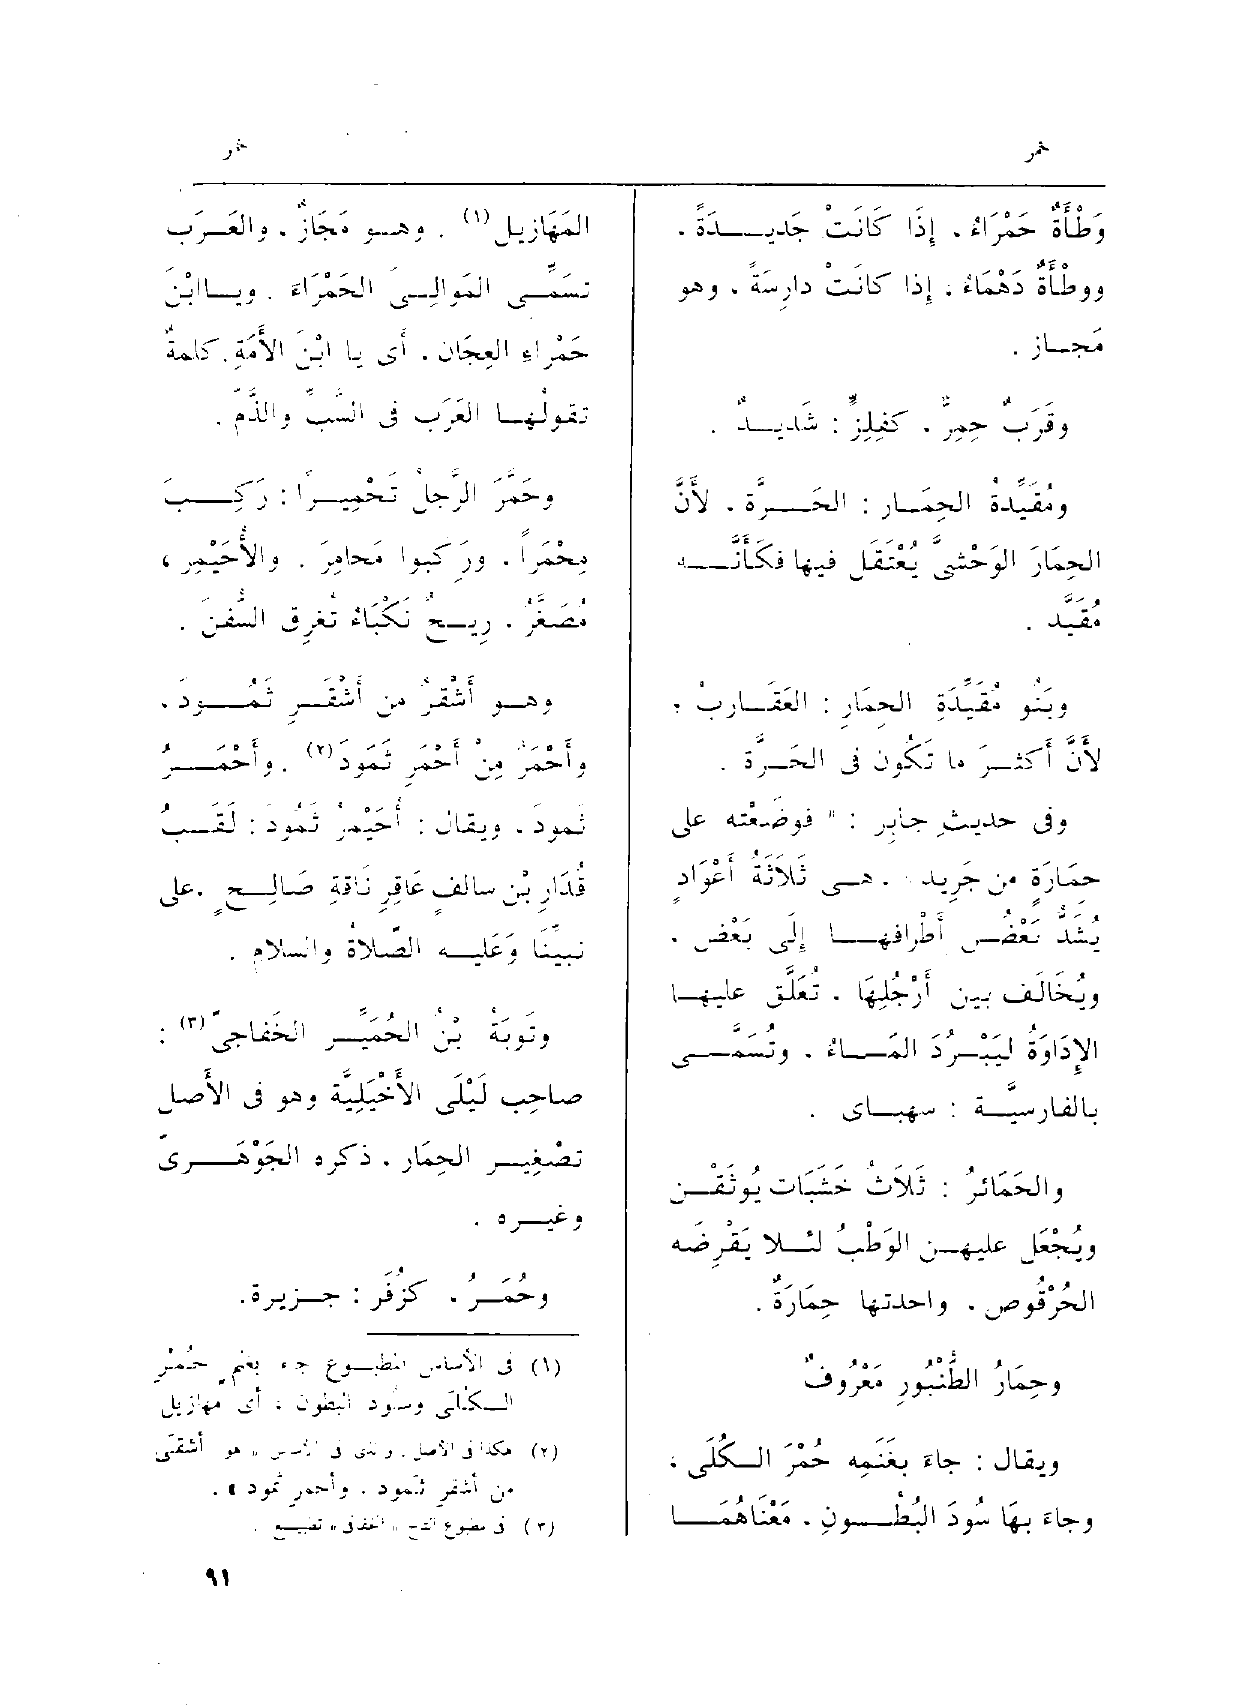 حمر
حمر
وَطْأَةٌ حَمْرَاءُ، إِذَا كَانَتْ جَدِيــدَةً .
ووطْأَةٌ دَهْمَاءُ ، إِذا كانَتْ دارِسَةً ، وهو
مَجـاز .
وقَرَبٌ حِمِرٌّ ، كفِلِزٍّ : شَدِيــدٌ .
ومُقَيِّدةُ الحِمَـار : الحَــرَّة ، لأَنَّ
الحِمَارَ الوَحْشىَّ يُعْتَقَل فيها فكَأَنَّــه
مُقَيَّد .
وبَنُو مُقَيِّدَةِ الحِمَارِ : العَقَـارِبُ ،
لأَنَّ أَكثَـرَ ما تَكُون فى الحَـرَّة .
وفى حديـثِ جابِر : " فوضَعْته على
حِمَارَةٍ من جَرِيد . هـى ثَلاَثَةُ أَعْوَادٍ
يُشَدُّ بَعْضُـس أَطْرافِهـا إِلَى بَعْض ،
ويُخَالَف بين أَرْجُلِهَا ، تُعَلَّق عليهـا
الإِدَاوَةُ ليَبْـرُدَ المَـاءُ ، وتُسَمَّــى
بالفارسيَّـة : سهبـاى .
والحَمَائرُ : ثَلاَثُ خَشَبَات يُوثَقْـن
ويُجْعَل عليهـن الوَطْبُ لئـلا يَقْرِضَه
الحُرْقُوص، واحدتها حِمَارَةٌ .
وحِمَارُ الطُّنْبُورِ مَعْرُوفٌ
ويقال : جاءَ بغَنَمِه حُمْرَ الـكُلَى ،
وجاءَ بهَا سُودَ البُطُـون ، مَعْنَاهُمَـا
المَهَازِيـل (١) ، وهـو مَجَازٌ ، والعَـرَب
تسَمِّـى المَوالِـىَ الحَمْرَاءَ . ويـا ابْنَ
حَمْراءِ العِجَان، أَى يا ابْنَ الأَمَةِ، كلمةٌ
تقولُهـا العَرَب فى السَّبِّ والذَّمِّ .
وحَمَّرَ الرَّجلُ تَحْمِيـرًا : رَكِـبَ
مِحْمَرًا ، ورَكبوا مَحامِرَ . والأُحَيْمِر ،
مُصَغَّرٌ ، رِيـحٌ نَكْبَاءُ تُغرِق السُّفنَ .
وهـو أَشْقَرُ من أَشْقَـرِ ثَمُـودَ،
وأَحْمَرُ مِنْ أَحْمَرِ ثَمُودَ (٢) . وأَحْمَـرُ
ثمودَ، ويقال : أُحَيْمِرُ ثَمُودَ : لَقَـبُ
قُدَارِ بْنِ سالفٍ عَاقِرِ نَاقَةِ صَالِـحٍ ،على
نبيِّنَا وَعَليـه الصّلاةُ والسلام .
وتَوبَةُ بْنُ الحُمَيِّـر الخَفَاجِىّ (٣) :
صاحِب لَيْلَى الأَخْيَلِيَّة وهو فى الأَصل
تصْغِيـر الحِمَار ، ذكره الجَوْهَـرىّ
وغيـره .
وحُمَـرُ ، كزُفَر : جـزيرة .
(١) فى الأساس المطبـوع جاء بغنمٍ حُمْرِ
الـكُلَى وسُود البطون ، أى مهازيل
(٢) هكذا فى الأصل ، والذى فى الأساس « هو أشقى
من أشقر ثمود ، وأحمر ثمود » .
(٣) فى مطبوع التاج « الخفاف » تطبيع .
٩١